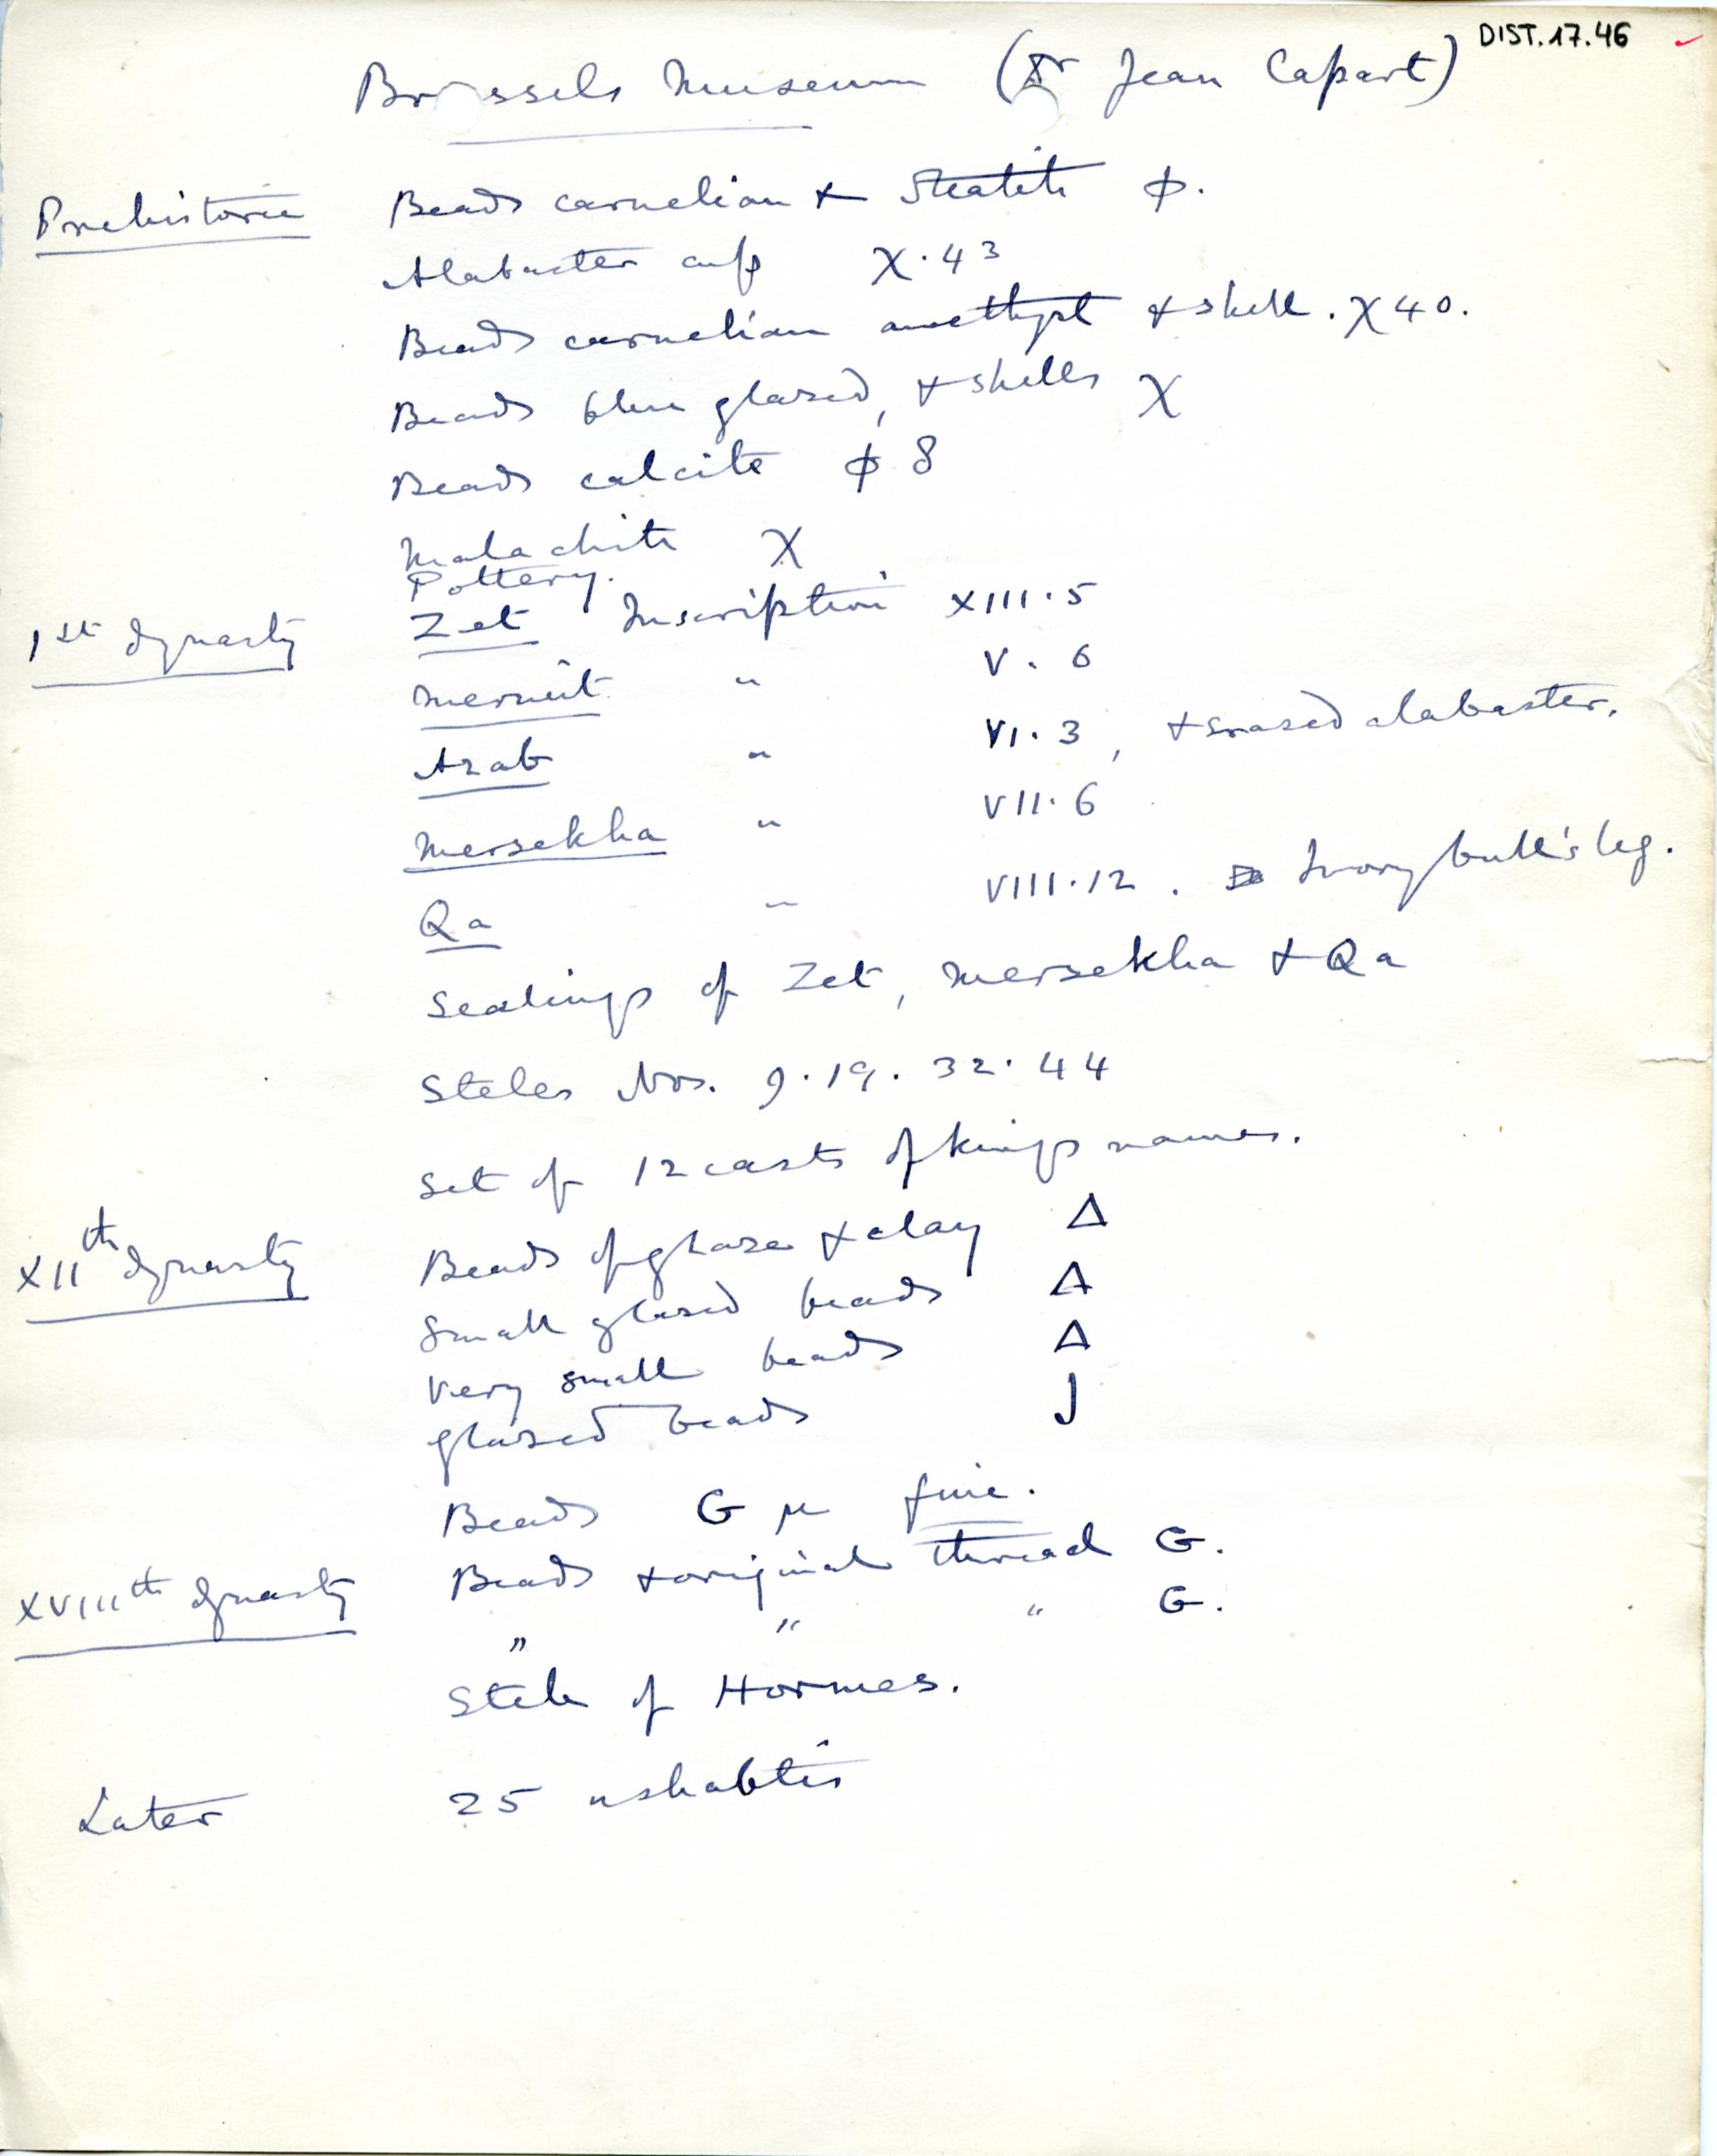 DIST.17.46
Brussels Museum (Dr Jean Capart)
Prehistoric Beads carnelian + Steatite φ.
Alabaster cup χ.43
Beads carnelian amethyst + shell. χ 40.
Beads blue glazed, + shells χ
Beads calcite φ 8
Malachite χ
Pottery.
1st dynasty Zet Inscription XIII.5
Merneit " V. 6
Azab " VI.3, + erased alabaster.
Mersekha " VII.6
Qa " VIII.12. Ivory bull's leg.
Sealings of Zet, Mersekha + Qa
Steles Nos. 9.19.32.44
Set of 12 casts of kings names.
XIIth dynasty Beads of glaze + clay Δ
Small glazed beads Δ
Very small beads Δ
glazed beads J
Beads G μ fine.
XVIIIth dynasty Beads + original thread G.
" " " G.
Stele of Hormes.
Later 25 ushabtis